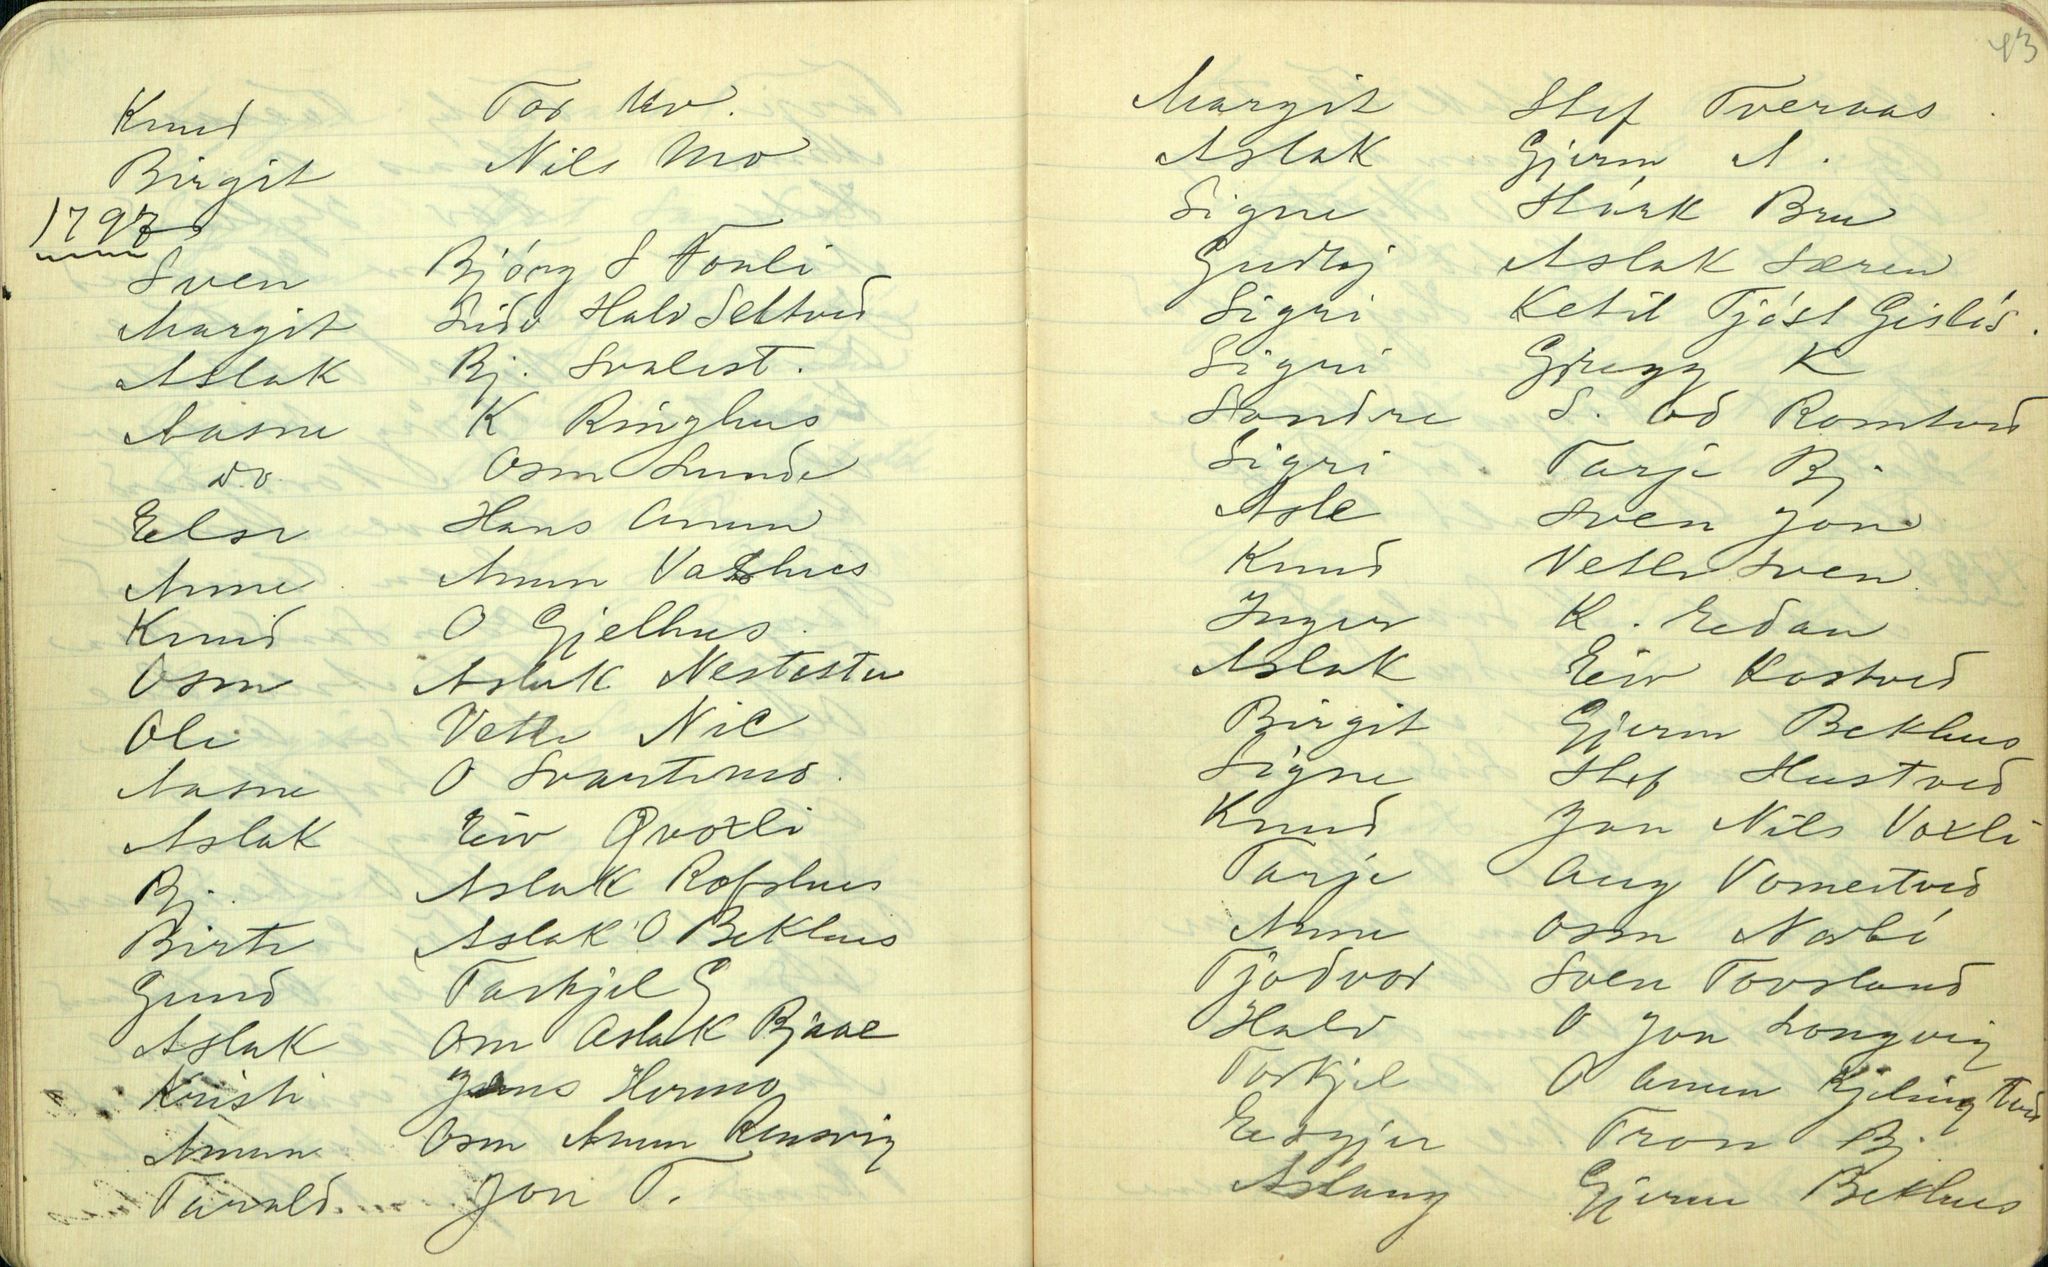 Knud Tor Mo.
Birgit Nils Mo
1797
Sven Bjórg S Tonli
Margit Lidv Halv Seltved
Aslak Bj. Svalest.
Aasne K Ringhus
do Osm Lunde
Else Hans Amun
Anne Amun Vashus
Knud O Gjelhus.
Osm Aslak Nestestu
Ole Vetle Nil
Aasne O Svartemo.
Aslak Eiv Qvoxli
Bj. Aslak Rofshus
Birte Aslak O Bekhus
Gund Torkjel G
Aslak Om Aslak Bjaae
Kristi Jens Hermo
Amun Osm Amun Rensvig
Tarald Jon T.
43
Margit Stef Tveraas.
Aslak Gjerm A.
Signe Stórk Bru
Gudlej Aslak Særen
Sigri Ketil Tjóst Gislós.
Sigri Gregg K
Sondre S. Od Romtved
Sigri Tarje Bj.
Asle Sven Jon
Knud Vetle Sven
Inger K. Edan
Aslak Eiv Kostved
Birgit Gjerm Bekhus
Signe Stef Hustved
Knud Jon Nils Voxli
Tarje Aug Vomestved
Anne Osm Norbó
Tjodvor Sven Tovsland
Halv O Jon Longvig
Torkjel O Amun Kjeling Tved
Esgjer Tron Bj.
Aslaug Gjerm Bekhus